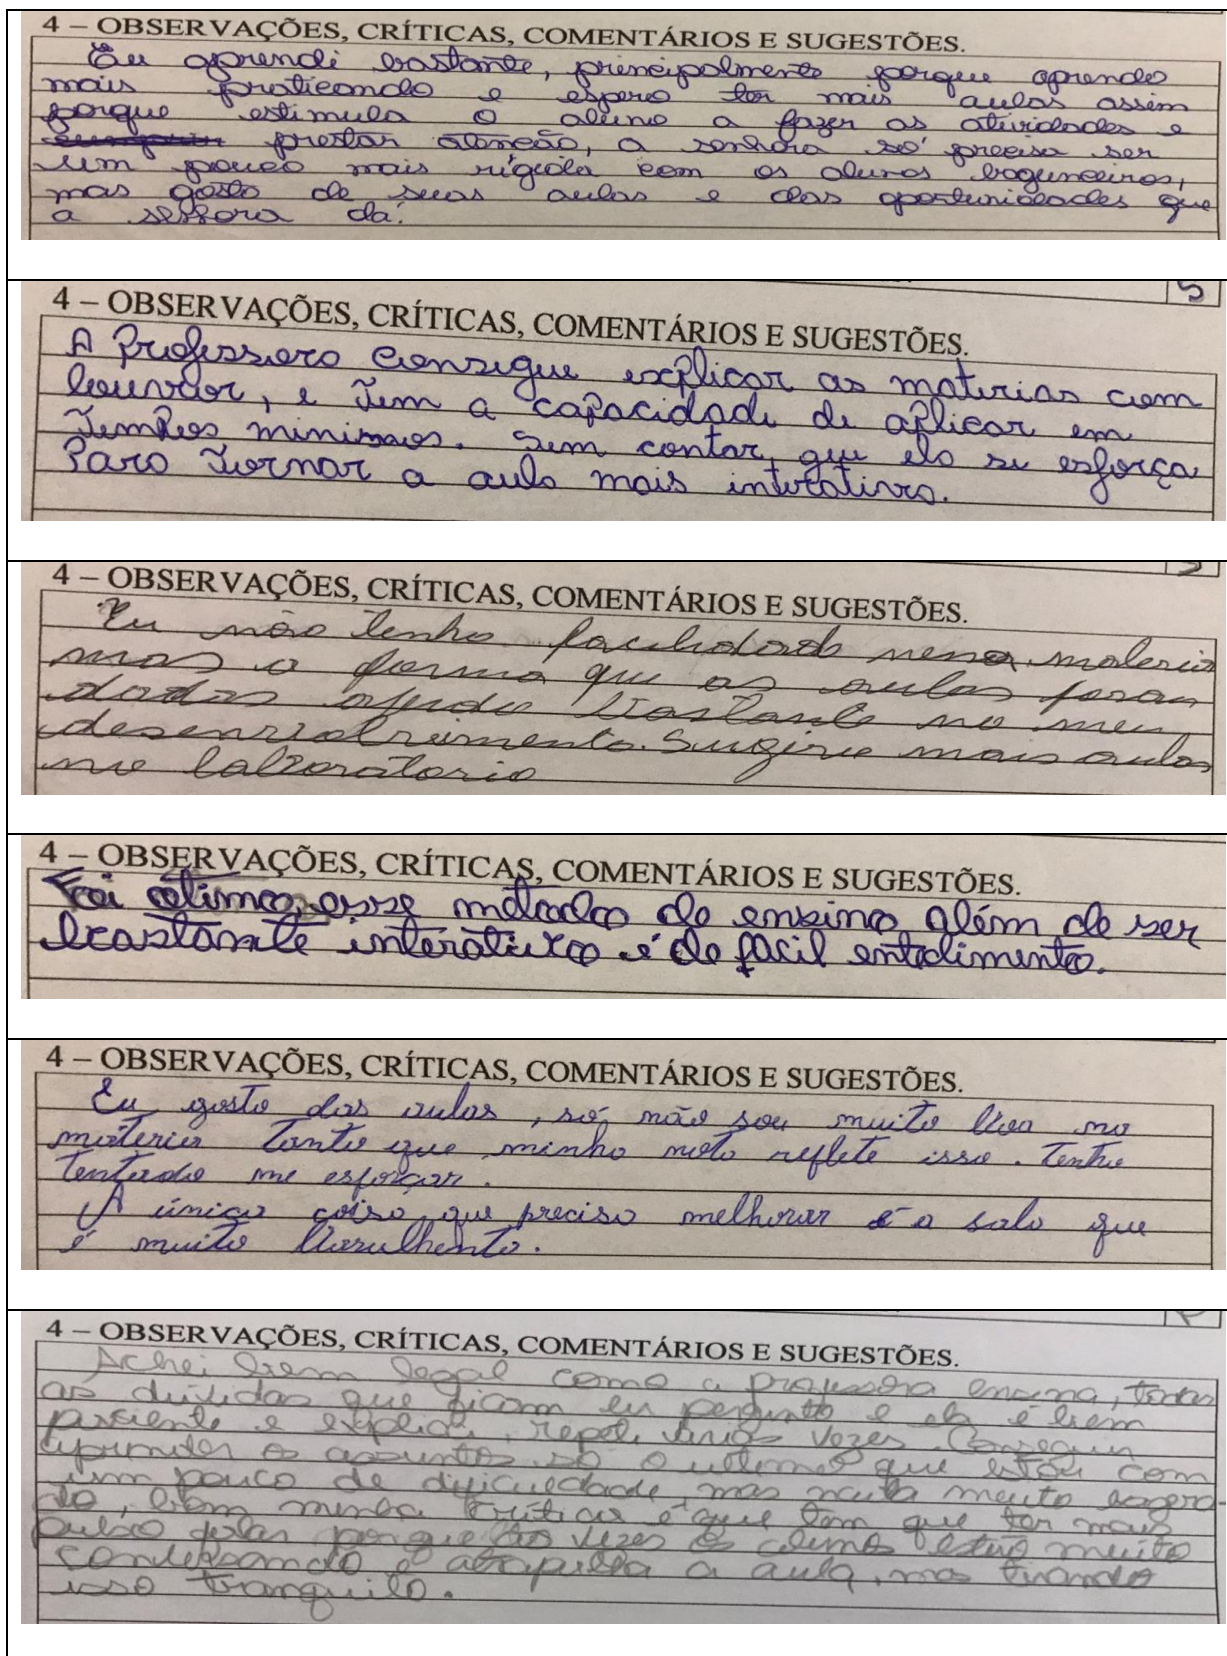 4 – OBSERVAÇÕES, CRÍTICAS, COMENTÁRIOS E SUGESTÕES.
Eu aprendi bastante, principalmente porque aprendo
mais praticando e espero ter mais aulas assim
porque estimula o aluno a fazer as atividades e
prestar atenção, a senhora só precisa ser
um pouco mais rígida com os alunos bagunceiros,
mas gosto de suas aulas e das oportunidades que
a senhora dá.
4 – OBSERVAÇÕES, CRÍTICAS, COMENTÁRIOS E SUGESTÕES.
A Professora consegue explicar as materias com
louvor, e tem a capacidade de aplicar em
tempos minimos. Sem contar, que ela se esforça
Para tornar a aula mais interativa.
4 – OBSERVAÇÕES, CRÍTICAS, COMENTÁRIOS E SUGESTÕES.
Eu não tenho facilidade materia
mas a forma que as aulas foram
dadas ajudo bastante no meu
desenvolvimento. Sugiro mais aulas
no laboratorio
4 – OBSERVAÇÕES, CRÍTICAS, COMENTÁRIOS E SUGESTÕES.
Foi otimo, esse metodo de ensino além de ser
bastante interativo é de facil entedimento.
4 – OBSERVAÇÕES, CRÍTICAS, COMENTÁRIOS E SUGESTÕES.
Eu gosto das aulas, só não sou muito boa na
materia tanto que minha nota reflete isso. Tenho
tentado me esforçar.
A única coisa que precisa melhorar é a sala que
é muito barulhenta.
4 – OBSERVAÇÕES, CRÍTICAS, COMENTÁRIOS E SUGESTÕES.
Achei bem legal como a professora ensina, todas
as dúvidas que ficam eu pergunto e ela é bem
paciente e explica, repete várias vezes. Consegui
aprender os assuntos só o ultimo que estou com
um pouco de dificuldade, mas nada muito
bom minha critica é que tem que ter mais
pulso porque as vezes os alunos estão muito
conversando e atrapalha a aula, mas tirando
isso tranquilo.